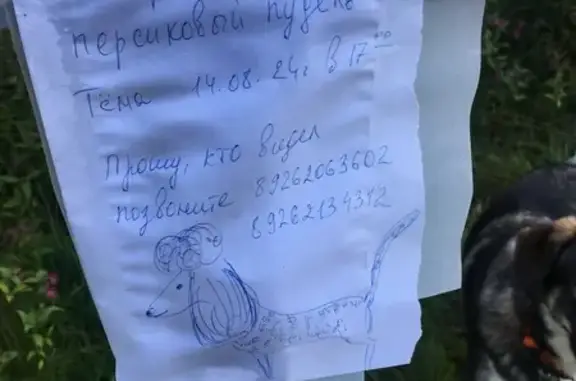 персиковый пудель
Тёма 14.08.24г в 17⁰⁰
Прошу, кто видел
позвоните 89262063602
89262134372